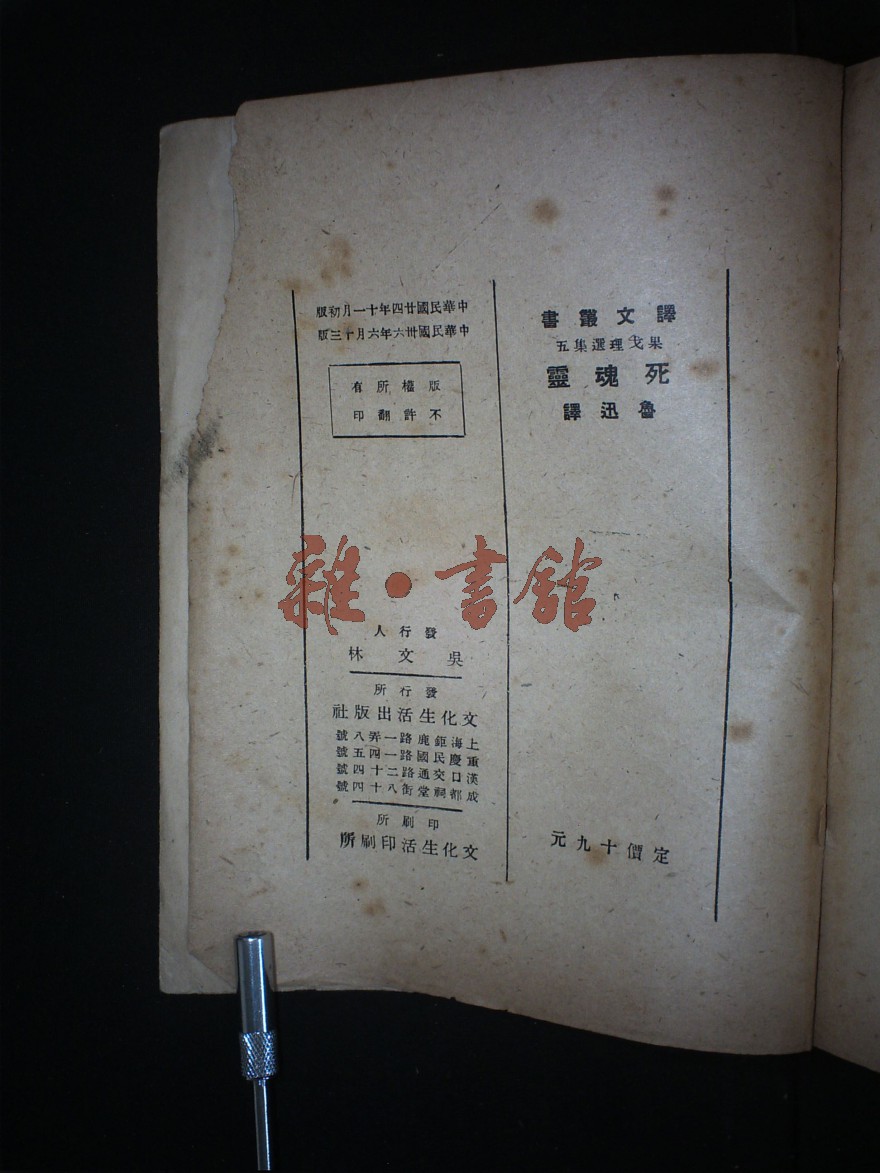 譯文叢書
果戈理選集五
死魂靈
魯迅譯
定價十九元
中華民國廿四年十一月初版
中華民國卅六年六月十三版
版權所有
不許翻印
發行人
吳文林
發行所
文化生活出版社
上海鉅鹿路一弄八號
重慶民國路一四五號
漢口交通路二十四號
成都祠堂街八十四號
印刷所
文化生活印刷所
雜·書館